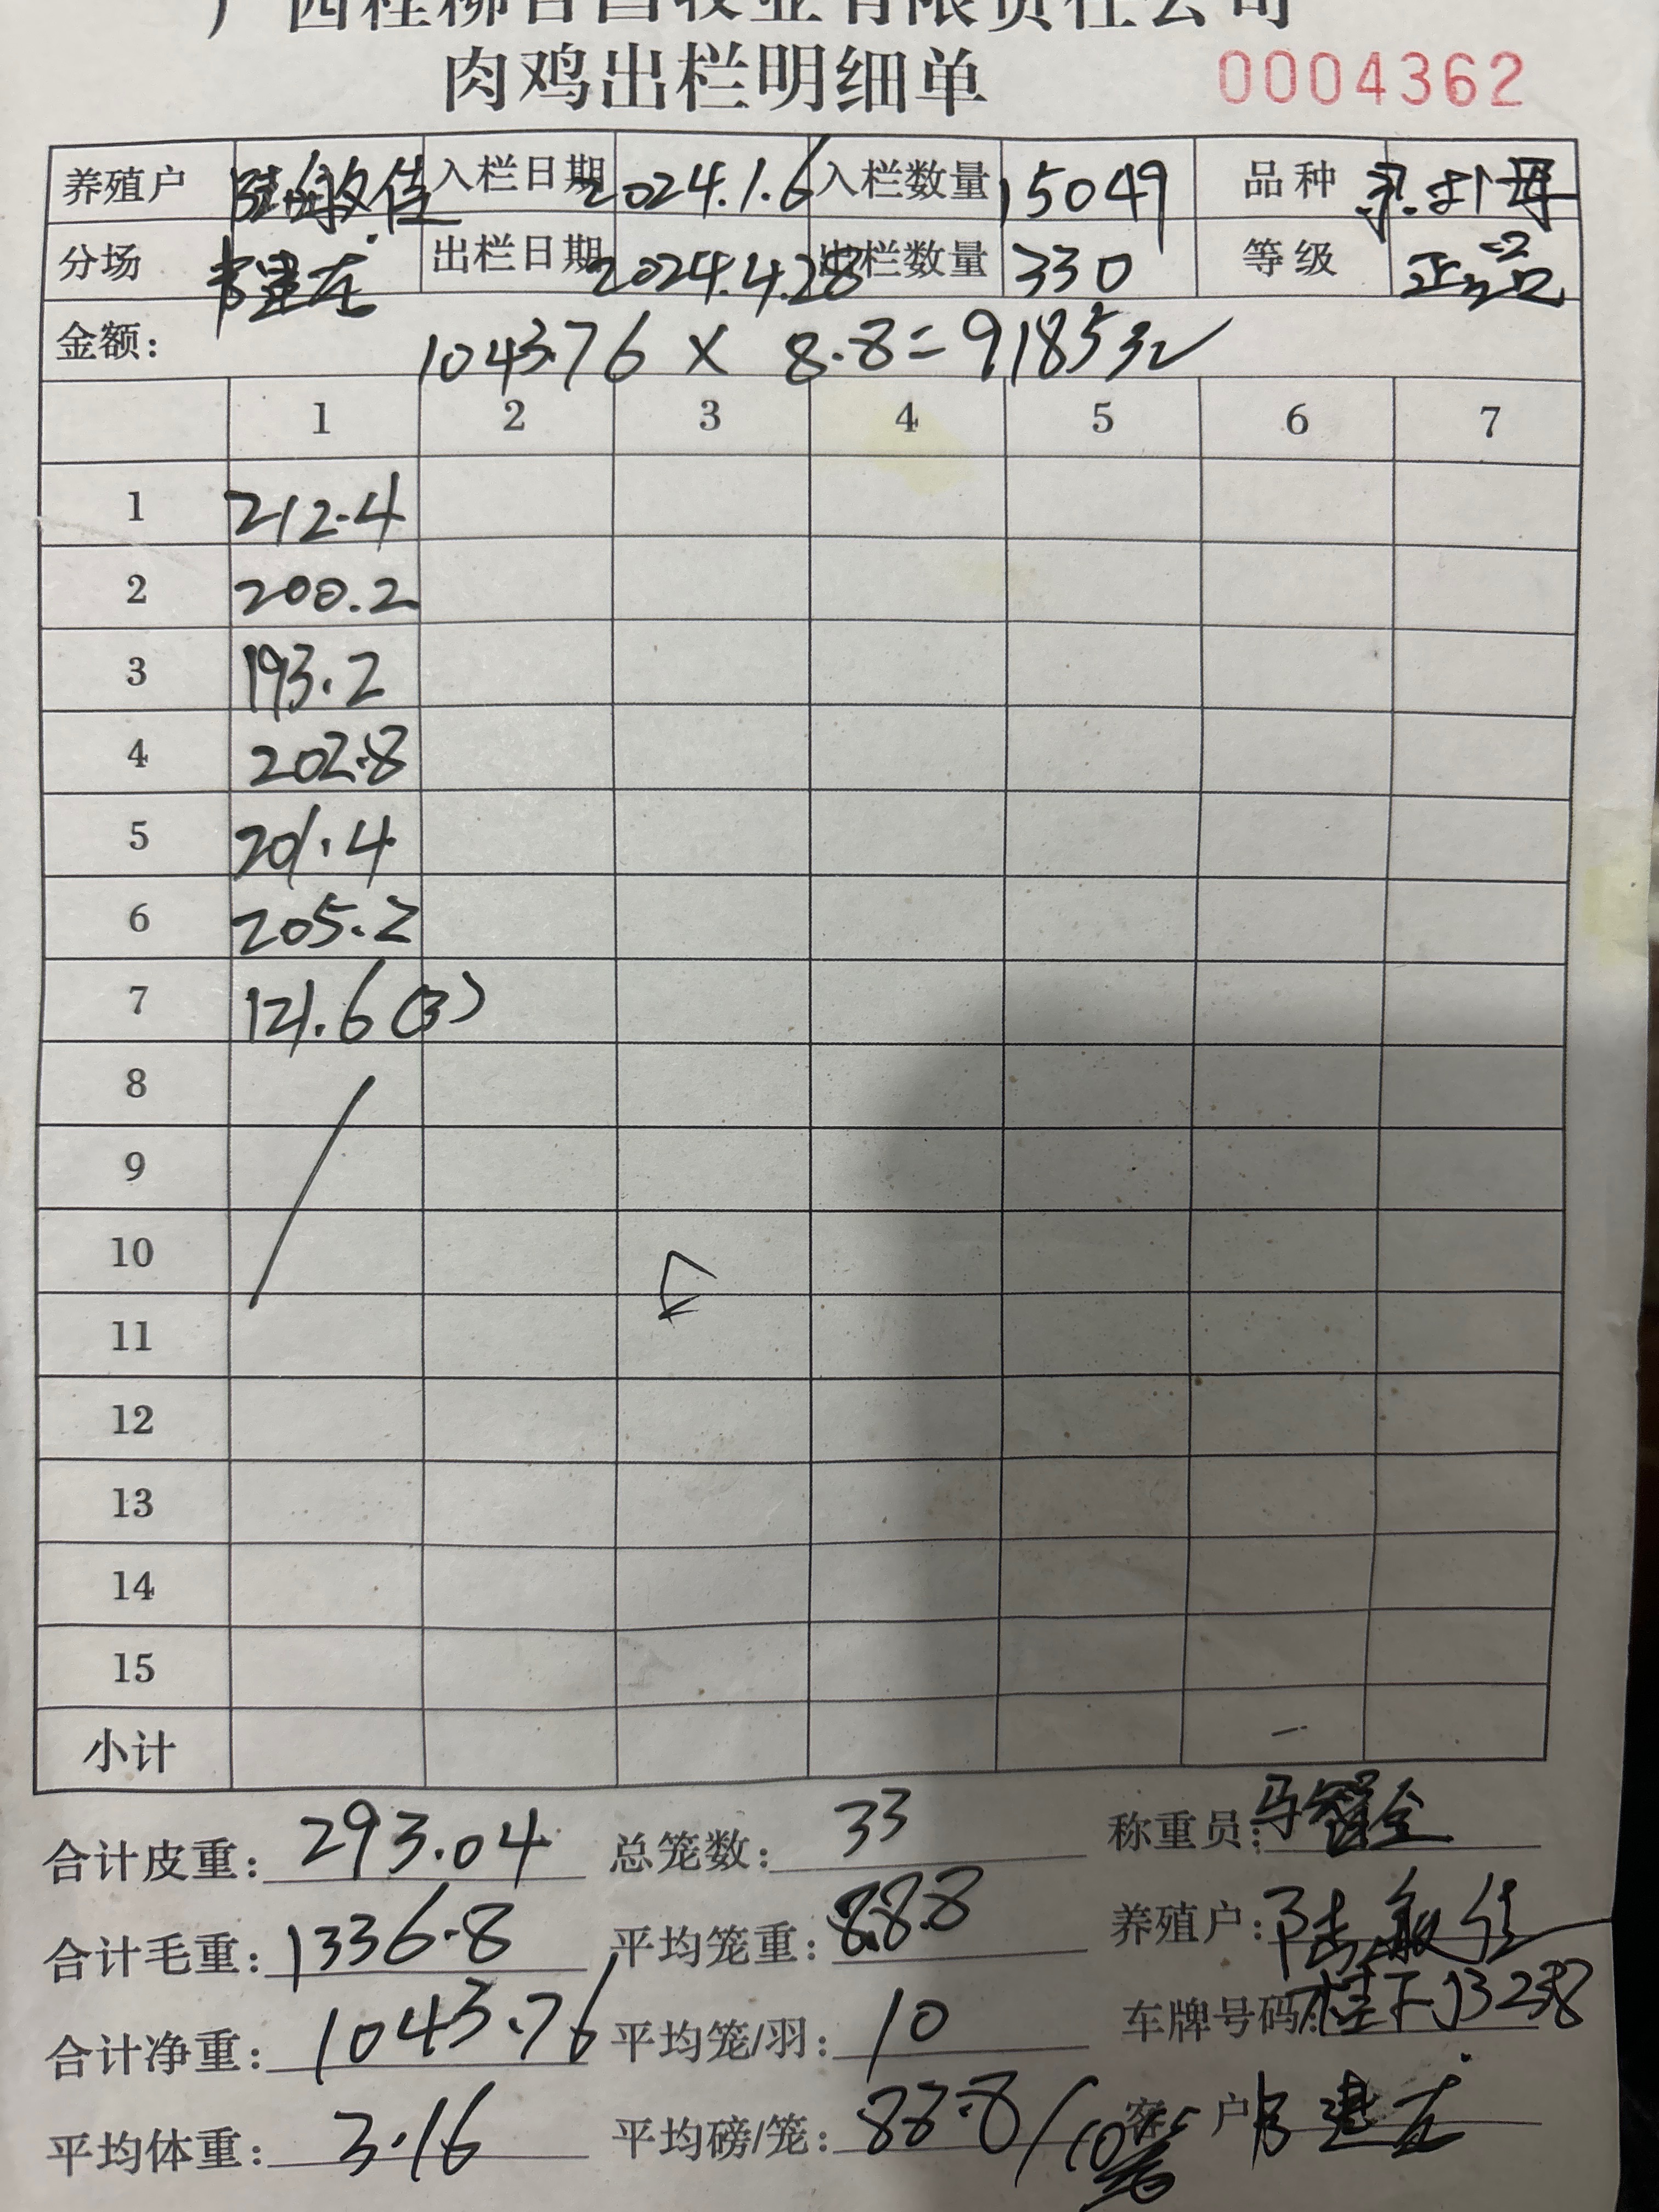 广西桂柳百商牧业有限责任公司
肉鸡出栏明细单 0004362
养殖户 陆敏佳 入栏日期 2024.1.6 入栏数量 15049 品种
分场 出栏日期 2024.4.28 出栏数量 330 等级 正品
金额： 1043.76 × 8.8=9185元
1 2 3 4 5 6 7
1 212.4
2 200.2
3 193.2
4 202.8
5 201.4
6 205.2
7 121.6 (3)
8
9
10
11
12
13
14
15
小计
合计皮重： 293.04 总笼数： 33 称重员：
合计毛重： 1336.8 平均笼重： 8.88 养殖户： 陆敏佳
合计净重： 1043.76 平均笼/羽： 10 车牌号码：
平均体重： 3.16 平均磅/笼： 88.8/10 客户